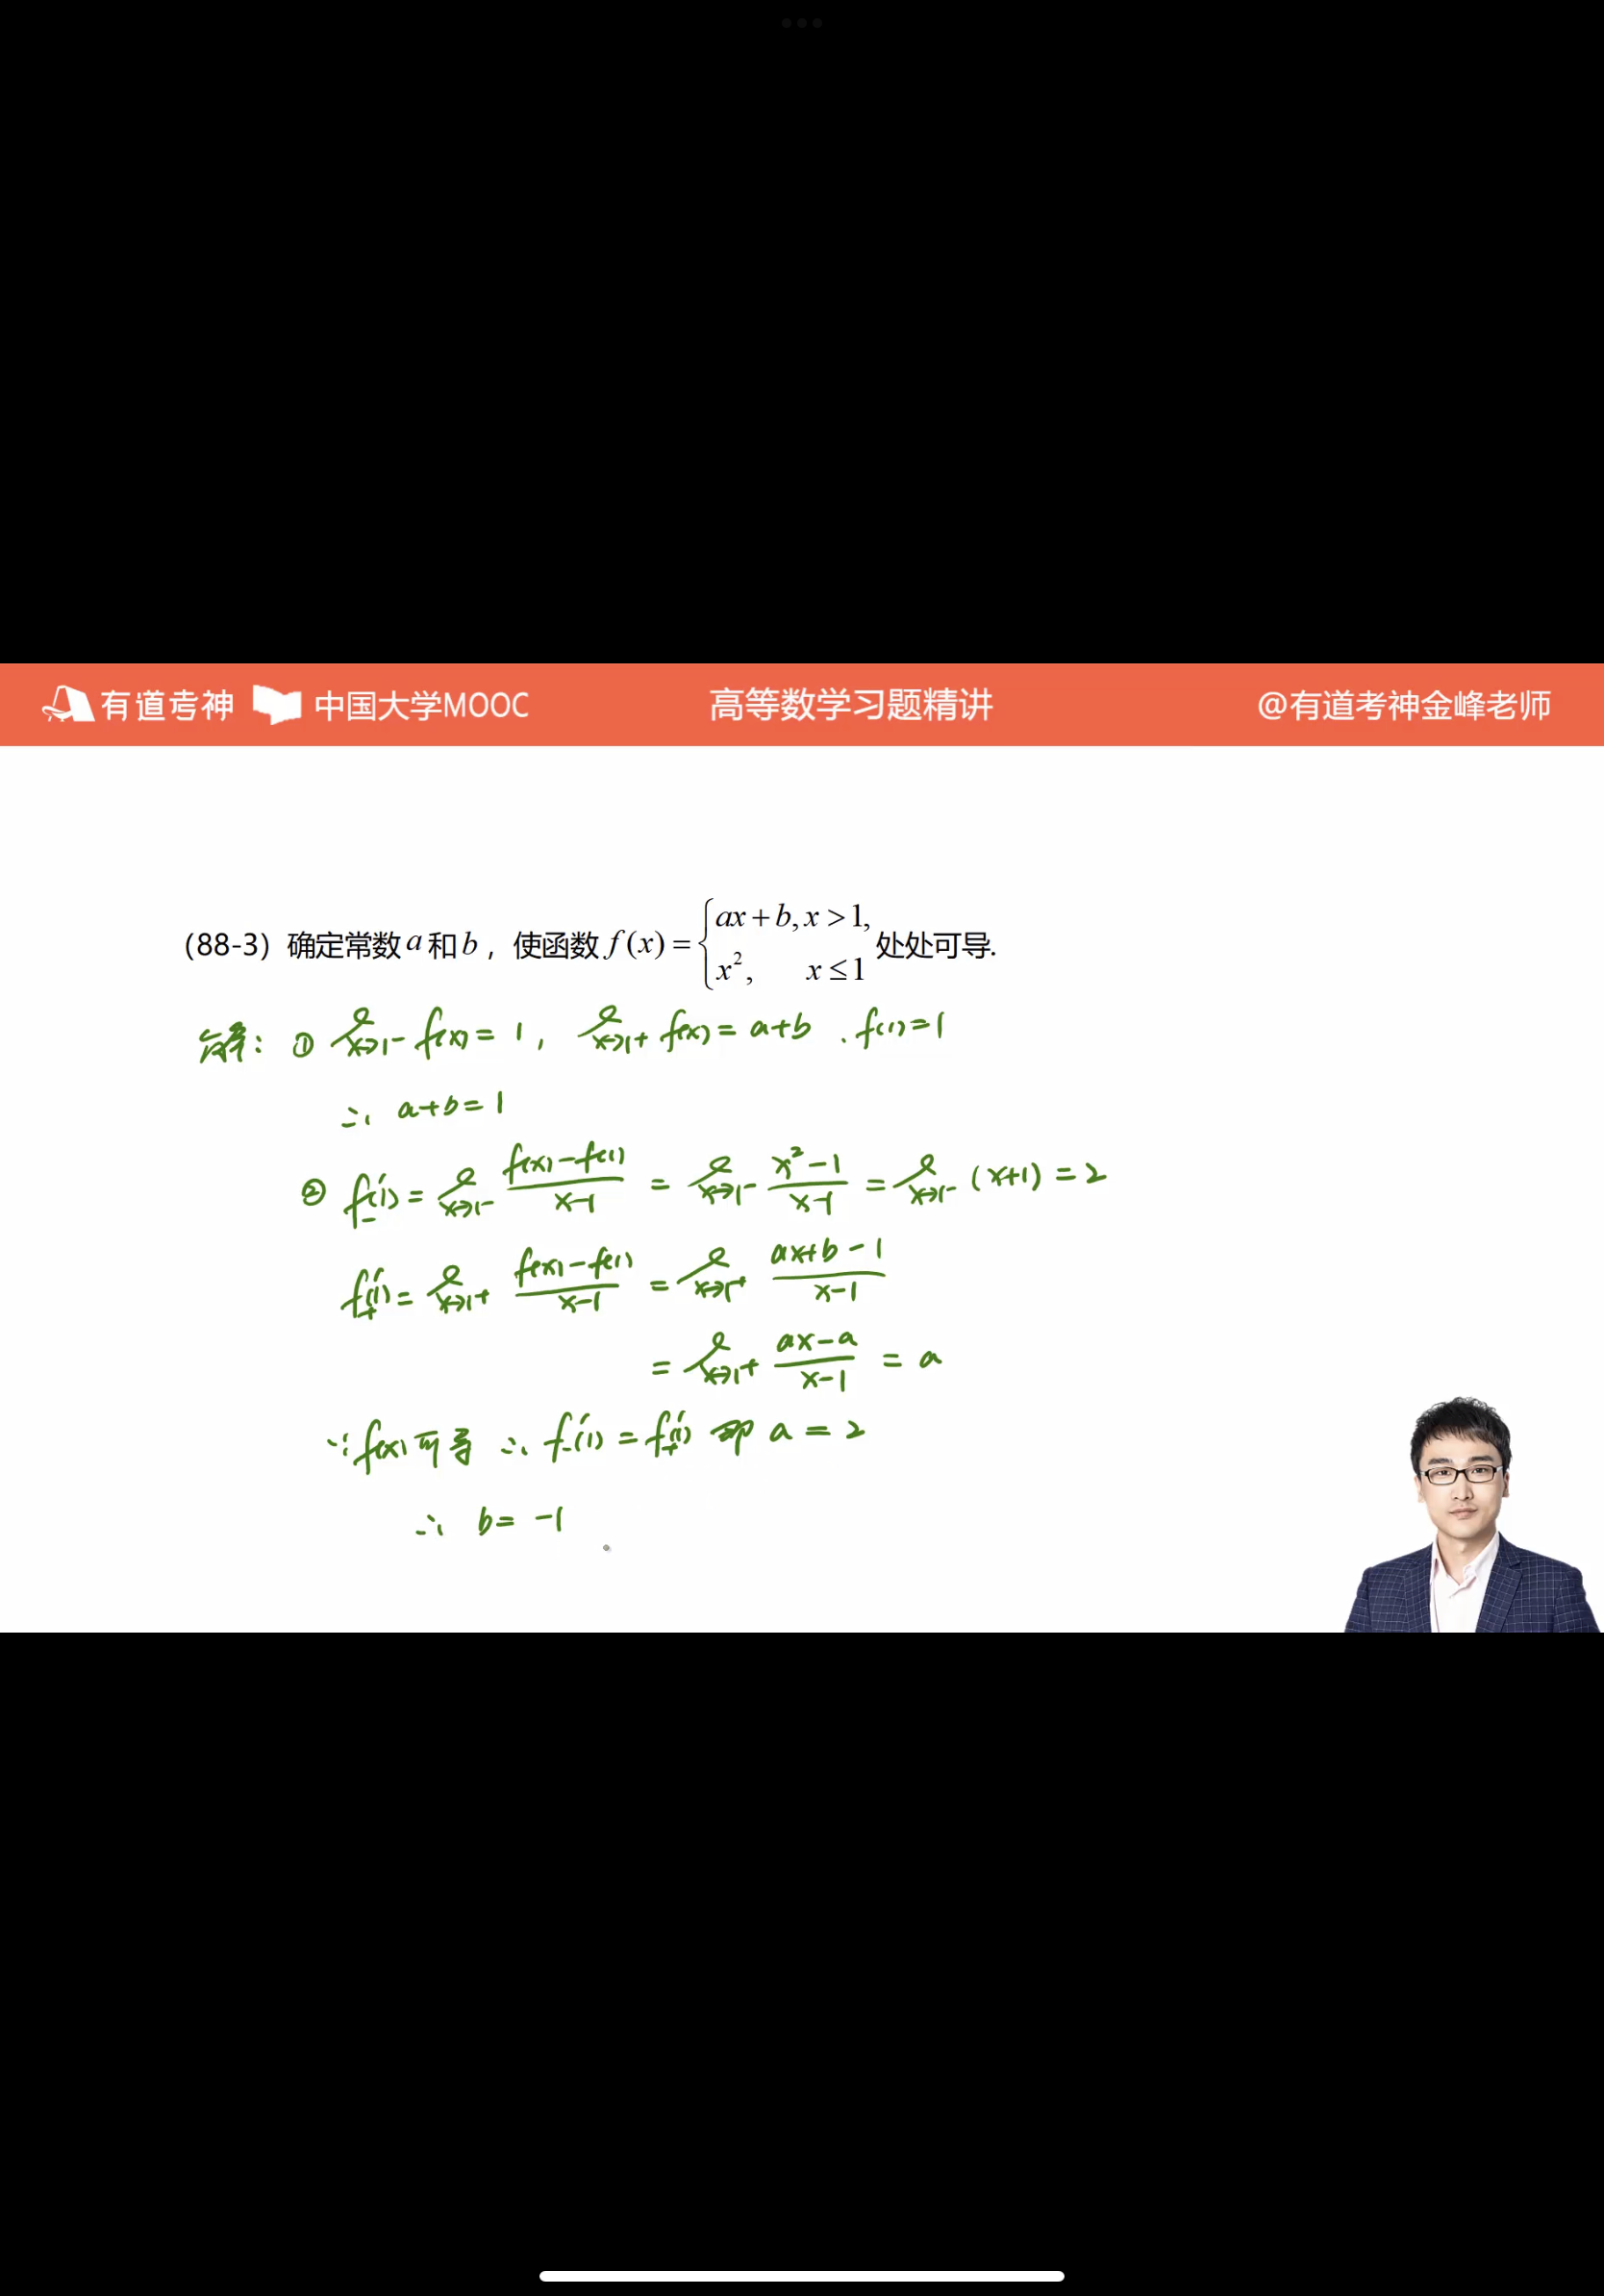 有道考神 中国大学MOOC 高等数学习题精讲 @有道考神金峰老师
（88-3）确定常数 a 和 b，使函数 f(x) = { ax + b, x > 1, x², x ≤ 1 处处可导.
解： ① lim x→1⁻ f(x) = 1, lim x→1⁺ f(x) = a+b . f(1) = 1
∴ a+b = 1
② f₋′(1) = lim x→1⁻ (f(x) − f(1))/(x−1) = lim x→1⁻ (x² − 1)/(x−1) = lim x→1⁻ (x+1) = 2
f₊′(1) = lim x→1⁺ (f(x) − f(1))/(x−1) = lim x→1⁺ (ax+b − 1)/(x−1)
= lim x→1⁺ (ax − a)/(x−1) = a
∵ f(x) 可导 ∴ f₋′(1) = f₊′(1) 即 a = 2
∴ b = −1